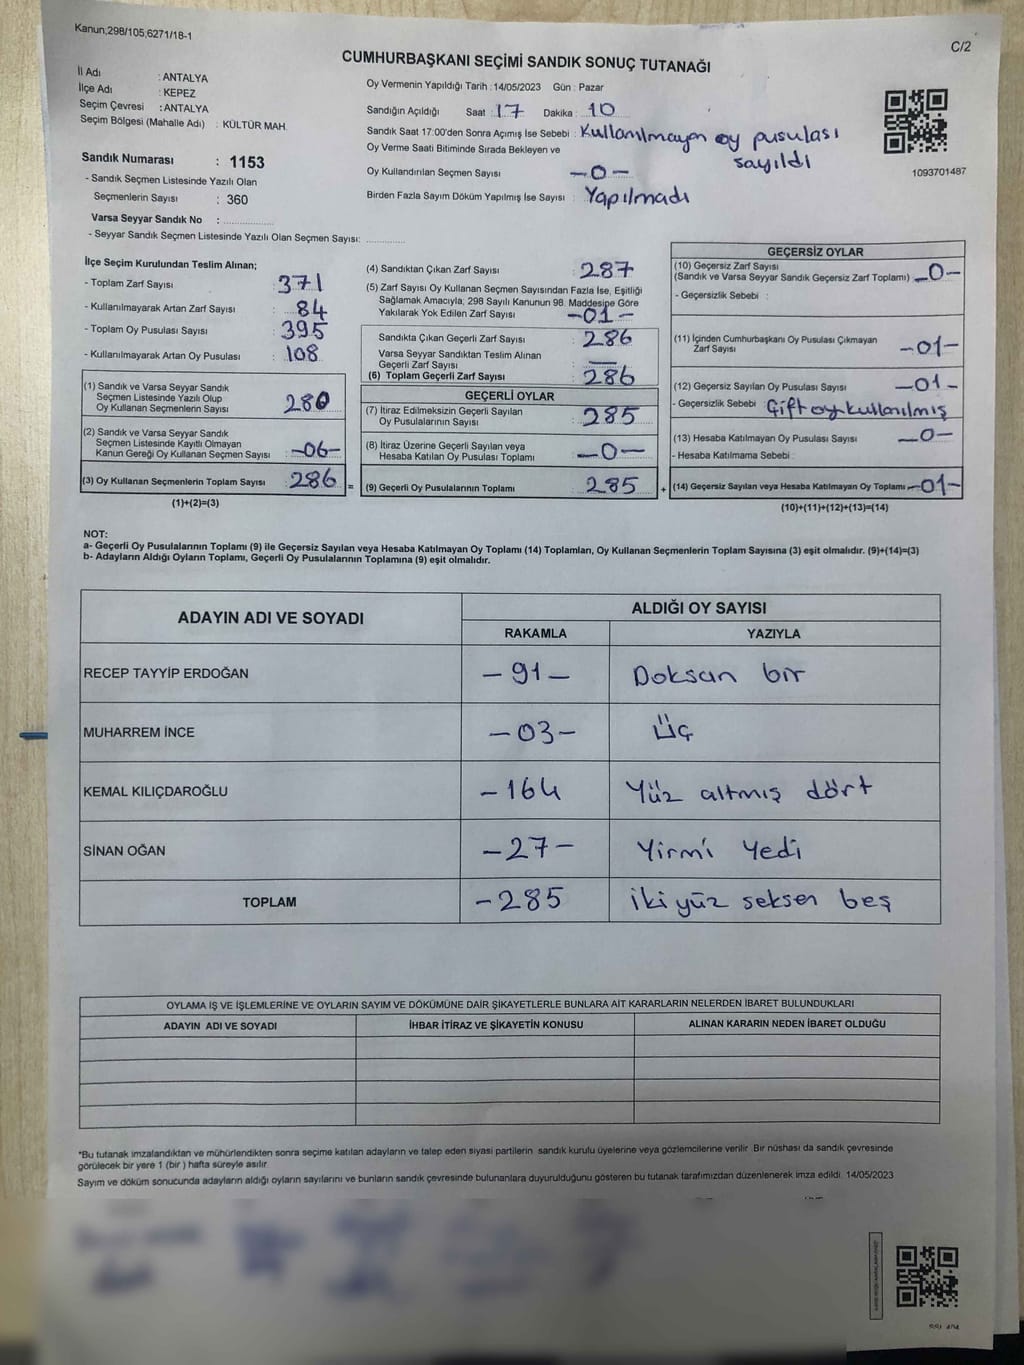 Kanun,298/105,6271/18-1
C/2
CUMHURBAŞKANI SEÇİMİ SANDIK SONUÇ TUTANAĞI
İl Adı : ANTALYA
İlçe Adı : KEPEZ
Seçim Çevresi : ANTALYA
Seçim Bölgesi (Mahalle Adı) : KÜLTÜR MAH.
Oy Vermenin Yapıldığı Tarih :14/05/2023 Gün : Pazar
Sandığın Açıldığı Saat : 17 Dakika : 10
Sandık Saat 17:00'den Sonra Açımış İse Sebebi : Kullanılmayan oy pusulası sayıldı
Oy Verme Saati Bitiminde Sırada Bekleyen ve
Oy Kullandırılan Seçmen Sayısı : -0-
Birden Fazla Sayım Döküm Yapılmış İse Sayısı : Yapılmadı
1093701487
Sandık Numarası : 1153
- Sandık Seçmen Listesinde Yazılı Olan
Seçmenlerin Sayısı : 360
Varsa Seyyar Sandık No :
- Seyyar Sandık Seçmen Listesinde Yazılı Olan Seçmen Sayısı:
İlçe Seçim Kurulundan Teslim Alınan;
- Toplam Zarf Sayısı : 371
- Kullanılmayarak Artan Zarf Sayısı : 84
- Toplam Oy Pusulası Sayısı : 395
- Kullanılmayarak Artan Oy Pusulası : 108
(1) Sandık ve Varsa Seyyar Sandık
Seçmen Listesinde Yazılı Olup
Oy Kullanan Seçmenlerin Sayısı : 280
(2) Sandık ve Varsa Seyyar Sandık
Seçmen Listesinde Kayıtlı Olmayan
Kanun Gereği Oy Kullanan Seçmen Sayısı : -06-
(3) Oy Kullanan Seçmenlerin Toplam Sayısı : 286 =
(1)+(2)=(3)
(4) Sandıktan Çıkan Zarf Sayısı : 287
(5) Zarf Sayısı Oy Kullanan Seçmen Sayısından Fazla İse, Eşitliği
Sağlamak Amacıyla; 298 Sayılı Kanunun 98. Maddesine Göre
Yakılarak Yok Edilen Zarf Sayısı : -01-
Sandıkta Çıkan Geçerli Zarf Sayısı : 286
Varsa Seyyar Sandıktan Teslim Alınan
Geçerli Zarf Sayısı : —
(6) Toplam Geçerli Zarf Sayısı : 286
GEÇERLİ OYLAR
(7) İtiraz Edilmeksizin Geçerli Sayılan
Oy Pusulalarının Sayısı : 285
(8) İtiraz Üzerine Geçerli Sayılan veya
Hesaba Katılan Oy Pusulası Toplamı : -0-
(9) Geçerli Oy Pusulalarının Toplamı : 285 +
GEÇERSİZ OYLAR
(10) Geçersiz Zarf Sayısı
(Sandık ve Varsa Seyyar Sandık Geçersiz Zarf Toplamı) : -0-
- Geçersizlik Sebebi :
(11) İçinden Cumhurbaşkanı Oy Pusulası Çıkmayan
Zarf Sayısı : -01-
(12) Geçersiz Sayılan Oy Pusulası Sayısı : -01-
- Geçersizlik Sebebi : Çift oy kullanılmış
(13) Hesaba Katılmayan Oy Pusulası Sayısı : -0-
- Hesaba Katılmama Sebebi :
(14) Geçersiz Sayılan veya Hesaba Katılmayan Oy Toplamı : -01-
(10)+(11)+(12)+(13)=(14)
NOT:
a- Geçerli Oy Pusulalarının Toplamı (9) ile Geçersiz Sayılan veya Hesaba Katılmayan Oy Toplamı (14) Toplamları, Oy Kullanan Seçmenlerin Toplam Sayısına (3) eşit olmalıdır. (9)+(14)=(3)
b- Adayların Aldığı Oyların Toplamı, Geçerli Oy Pusulalarının Toplamına (9) eşit olmalıdır.
ADAYIN ADI VE SOYADI ALDIĞI OY SAYISI
RAKAMLA YAZIYLA
RECEP TAYYİP ERDOĞAN -91- Doksan bir
MUHARREM İNCE -03- Üç
KEMAL KILIÇDAROĞLU -164 Yüz altmış dört
SİNAN OĞAN -27- Yirmi Yedi
TOPLAM -285 iki yüz seksen beş
OYLAMA İŞ VE İŞLEMLERİNE VE OYLARIN SAYIM VE DÖKÜMÜNE DAİR ŞİKAYETLERLE BUNLARA AİT KARARLARIN NELERDEN İBARET BULUNDUKLARI
ADAYIN ADI VE SOYADI İHBAR İTİRAZ VE ŞİKAYETİN KONUSU ALINAN KARARIN NEDEN İBARET OLDUĞU
*Bu tutanak imzalandıktan ve mühürlendikten sonra seçime katılan adayların ve talep eden siyasi partilerin sandık kurulu üyelerine veya gözlemcilerine verilir. Bir nüshası da sandık çevresinde
görülecek bir yere 1 (bir ) hafta süreyle asılır.
Sayım ve döküm sonucunda adayların aldığı oyların sayılarını ve bunların sandık çevresinde bulunanlara duyurulduğunu gösteren bu tutanak tarafımızdan düzenlenerek imza edildi. 14/05/2023